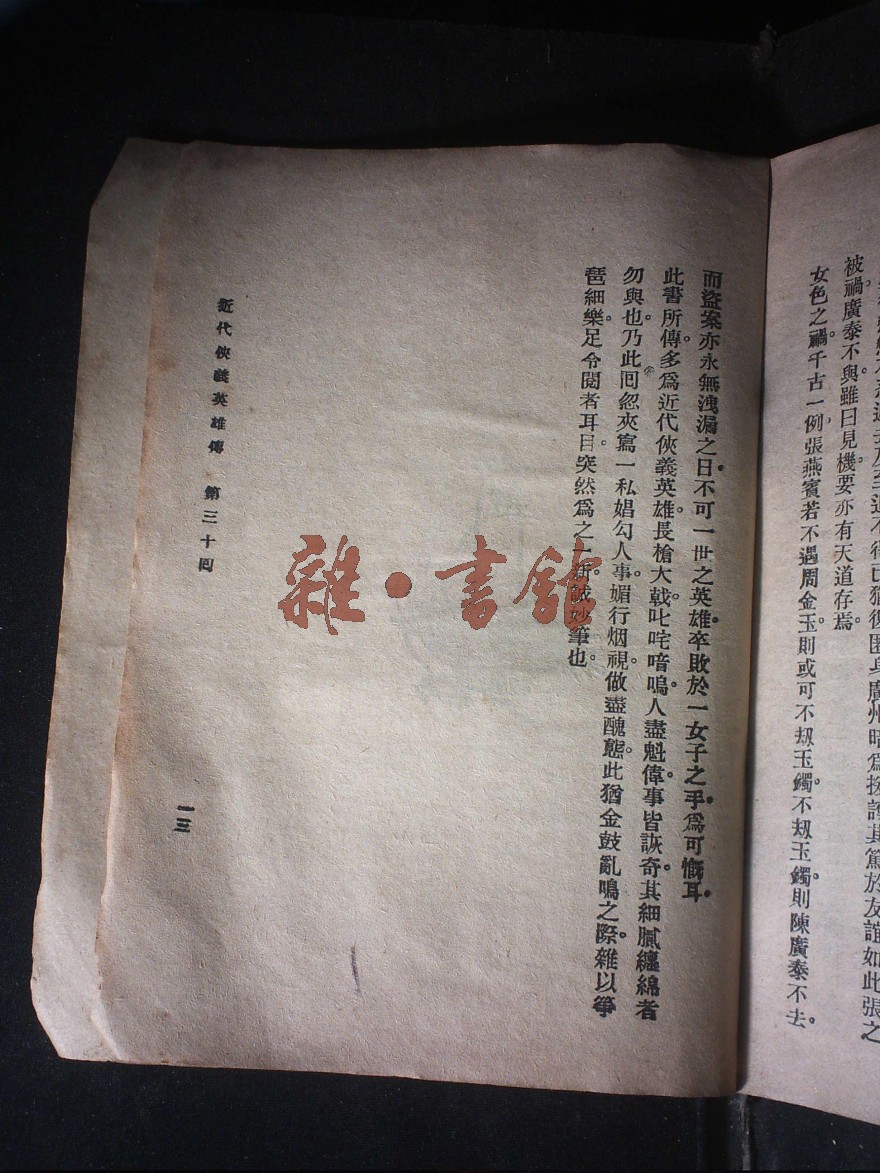 被禍廣泰不與雖曰見機要亦有天道存焉。
女色之禍千古一例張燕賓若不遇周金玉則或可不刼玉鐲不刼玉鐲則陳廣泰不去。
而盜案亦永無洩漏之日不可一世之英雄卒敗於一女子之手爲可慨耳
此書所傳多爲近代俠義英雄長槍大戟叱咤喑嗚人盡魁偉事皆詼奇其細膩纏綿者
勿與也乃此回忽夾寫一私娼勾人事媚行烟視做盡醜態此猶金鼓亂鳴之際雜以箏
琶細樂足令閱者耳目突然爲之一新誠妙筆也。
近代俠義英雄傳 第三十回
一三
雜·書館